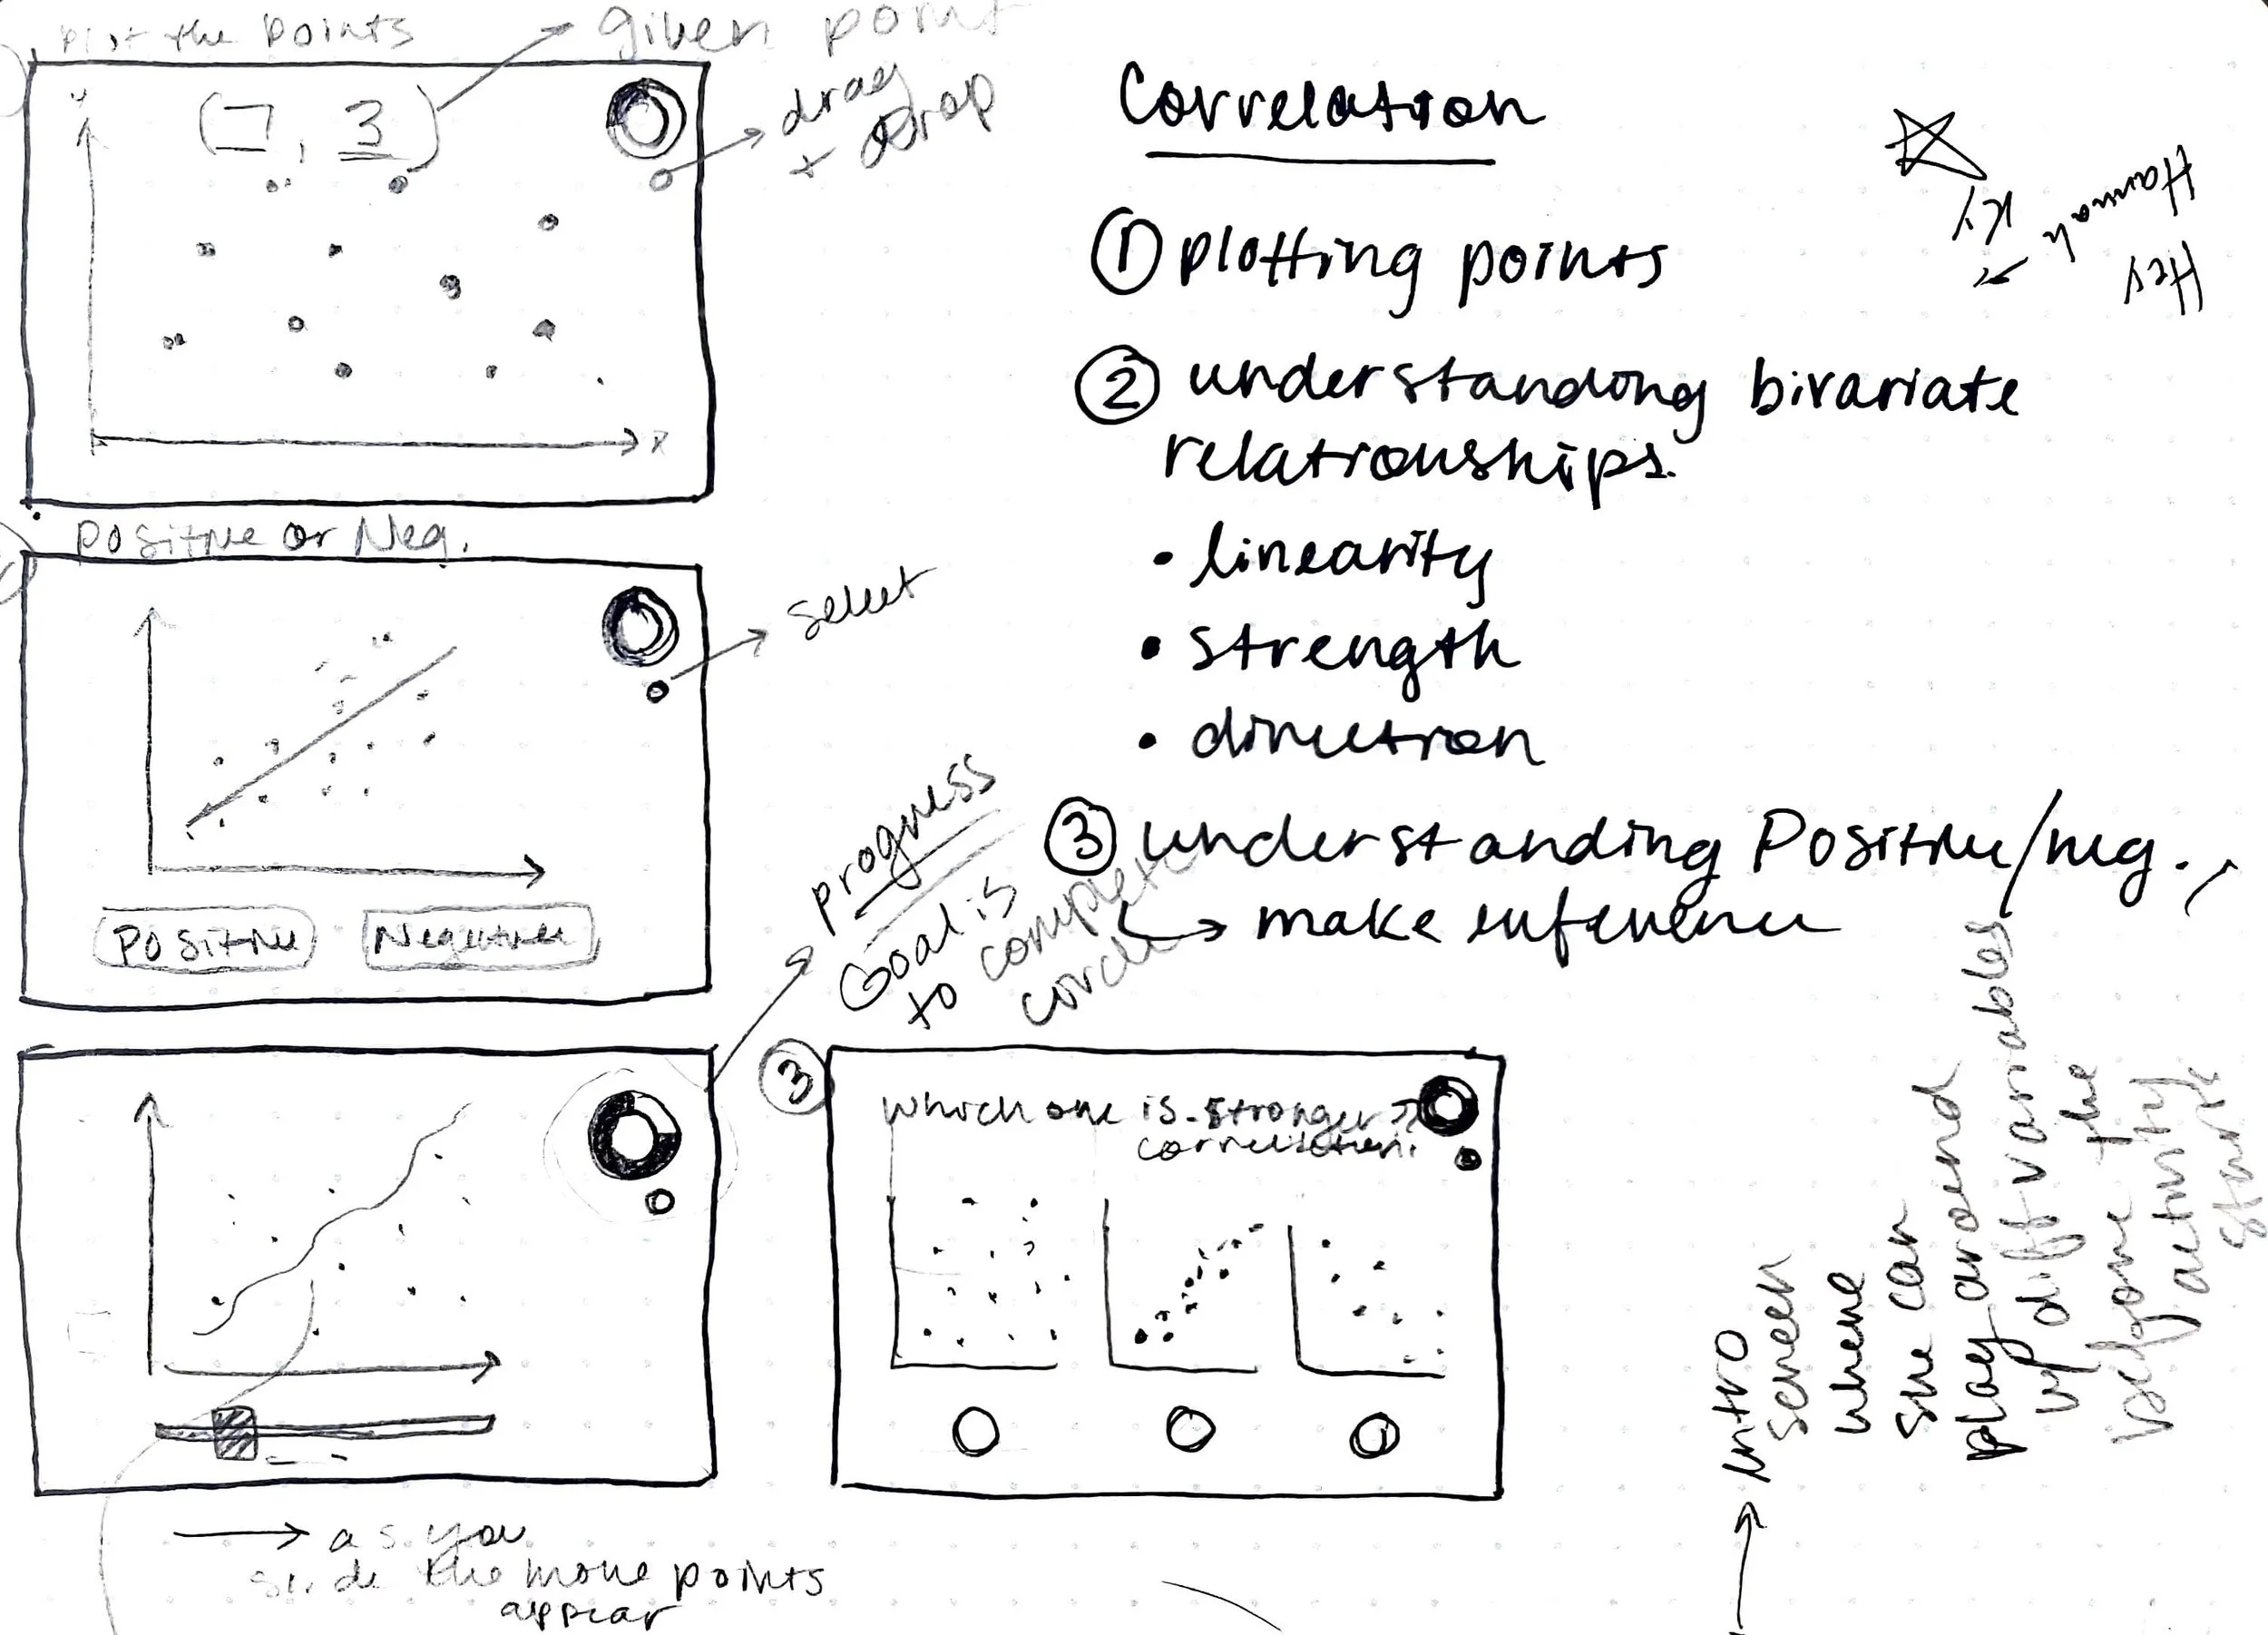 Plot the points
given point
(7, 3)
drag
+ drop
y
x
Positive or Neg.
select
Positive
Negative
progress
Goal is
to complete
circle
as you
slide the more points
appear
Correlation
① plotting points
② understanding bivariate
relationships.
• linearity
• strength
• direction
③ understanding Positive/neg.,
↳ make inference
3
which one is stronger
correlation?
Hey
Hannah
KY
→ intro
screen
where
she can
play around
w/ diff variables
before the
activity
starts